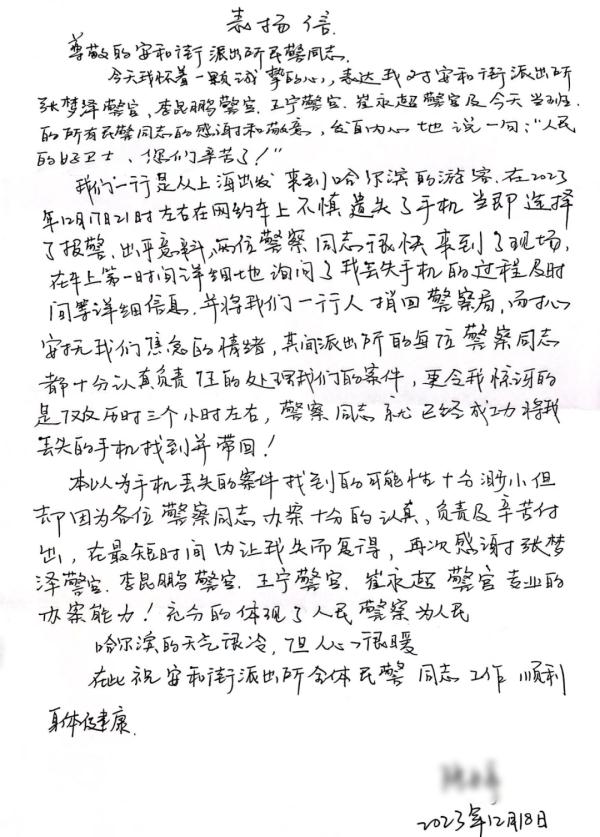 表扬信
尊敬的安和街派出所民警同志.
今天我怀着一颗诚挚的心，表达我对安和街派出所
张梦泽警官，李昆鹏警官.王宁警官.崔永超警官及今天当班
的所有民警同志的感谢和敬意，发自内心地说一句："人民
的好卫士、您们辛苦了！"
我们一行是从上海出发来到哈尔滨的游客.在2023
年12月17日21时左右在网约车上不慎遗失了手机当即选择
了报警、出乎意料，两位警察同志很快来到了现场，
在车上第一时间详细地询问了我丢失手机的过程及时
间等详细信息.并将我们一行人捎回警察局，耐心
安抚我们焦急的情绪，其间派出所的每位警察同志
都十分认真负责任的处理我们的案件，更令我惊讶的
是仅仅历时三个小时左右，警察同志就已经成功将我
丢失的手机找到并带回！
本以为手机丢失的案件找到的可能性十分渺小但
却因为各位警察同志办案十分的认真、负责及辛苦付
出，在最短时间内让我失而复得，再次感谢张梦
泽警官.李昆鹏警官.王宁警官.崔永超警官专业的
办案能力！充分的体现了人民警察为人民
哈尔滨的天气很冷，但人心很暖
在此祝安和街派出所全体民警同志工作顺利
身体健康.
2023年12月18日